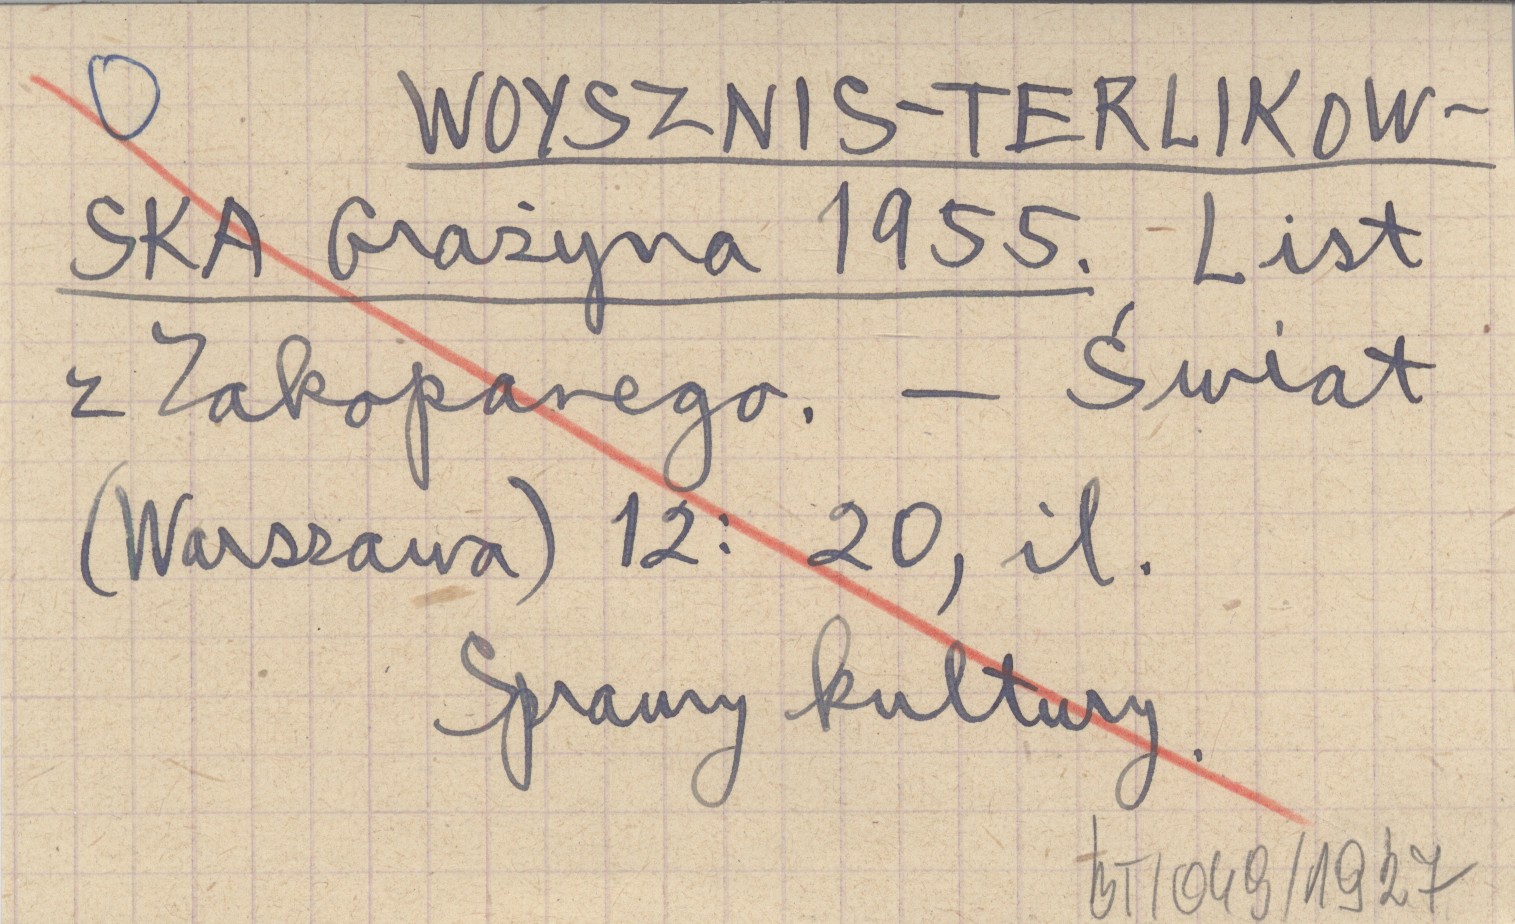 O WOYSZNIS-TERLIKOW-
SKA Grażyna 1955. List
z Zakopanego. — Świat
(Warszawa) 12: 20, il.
Sprawy kultury.
BT/049/1927